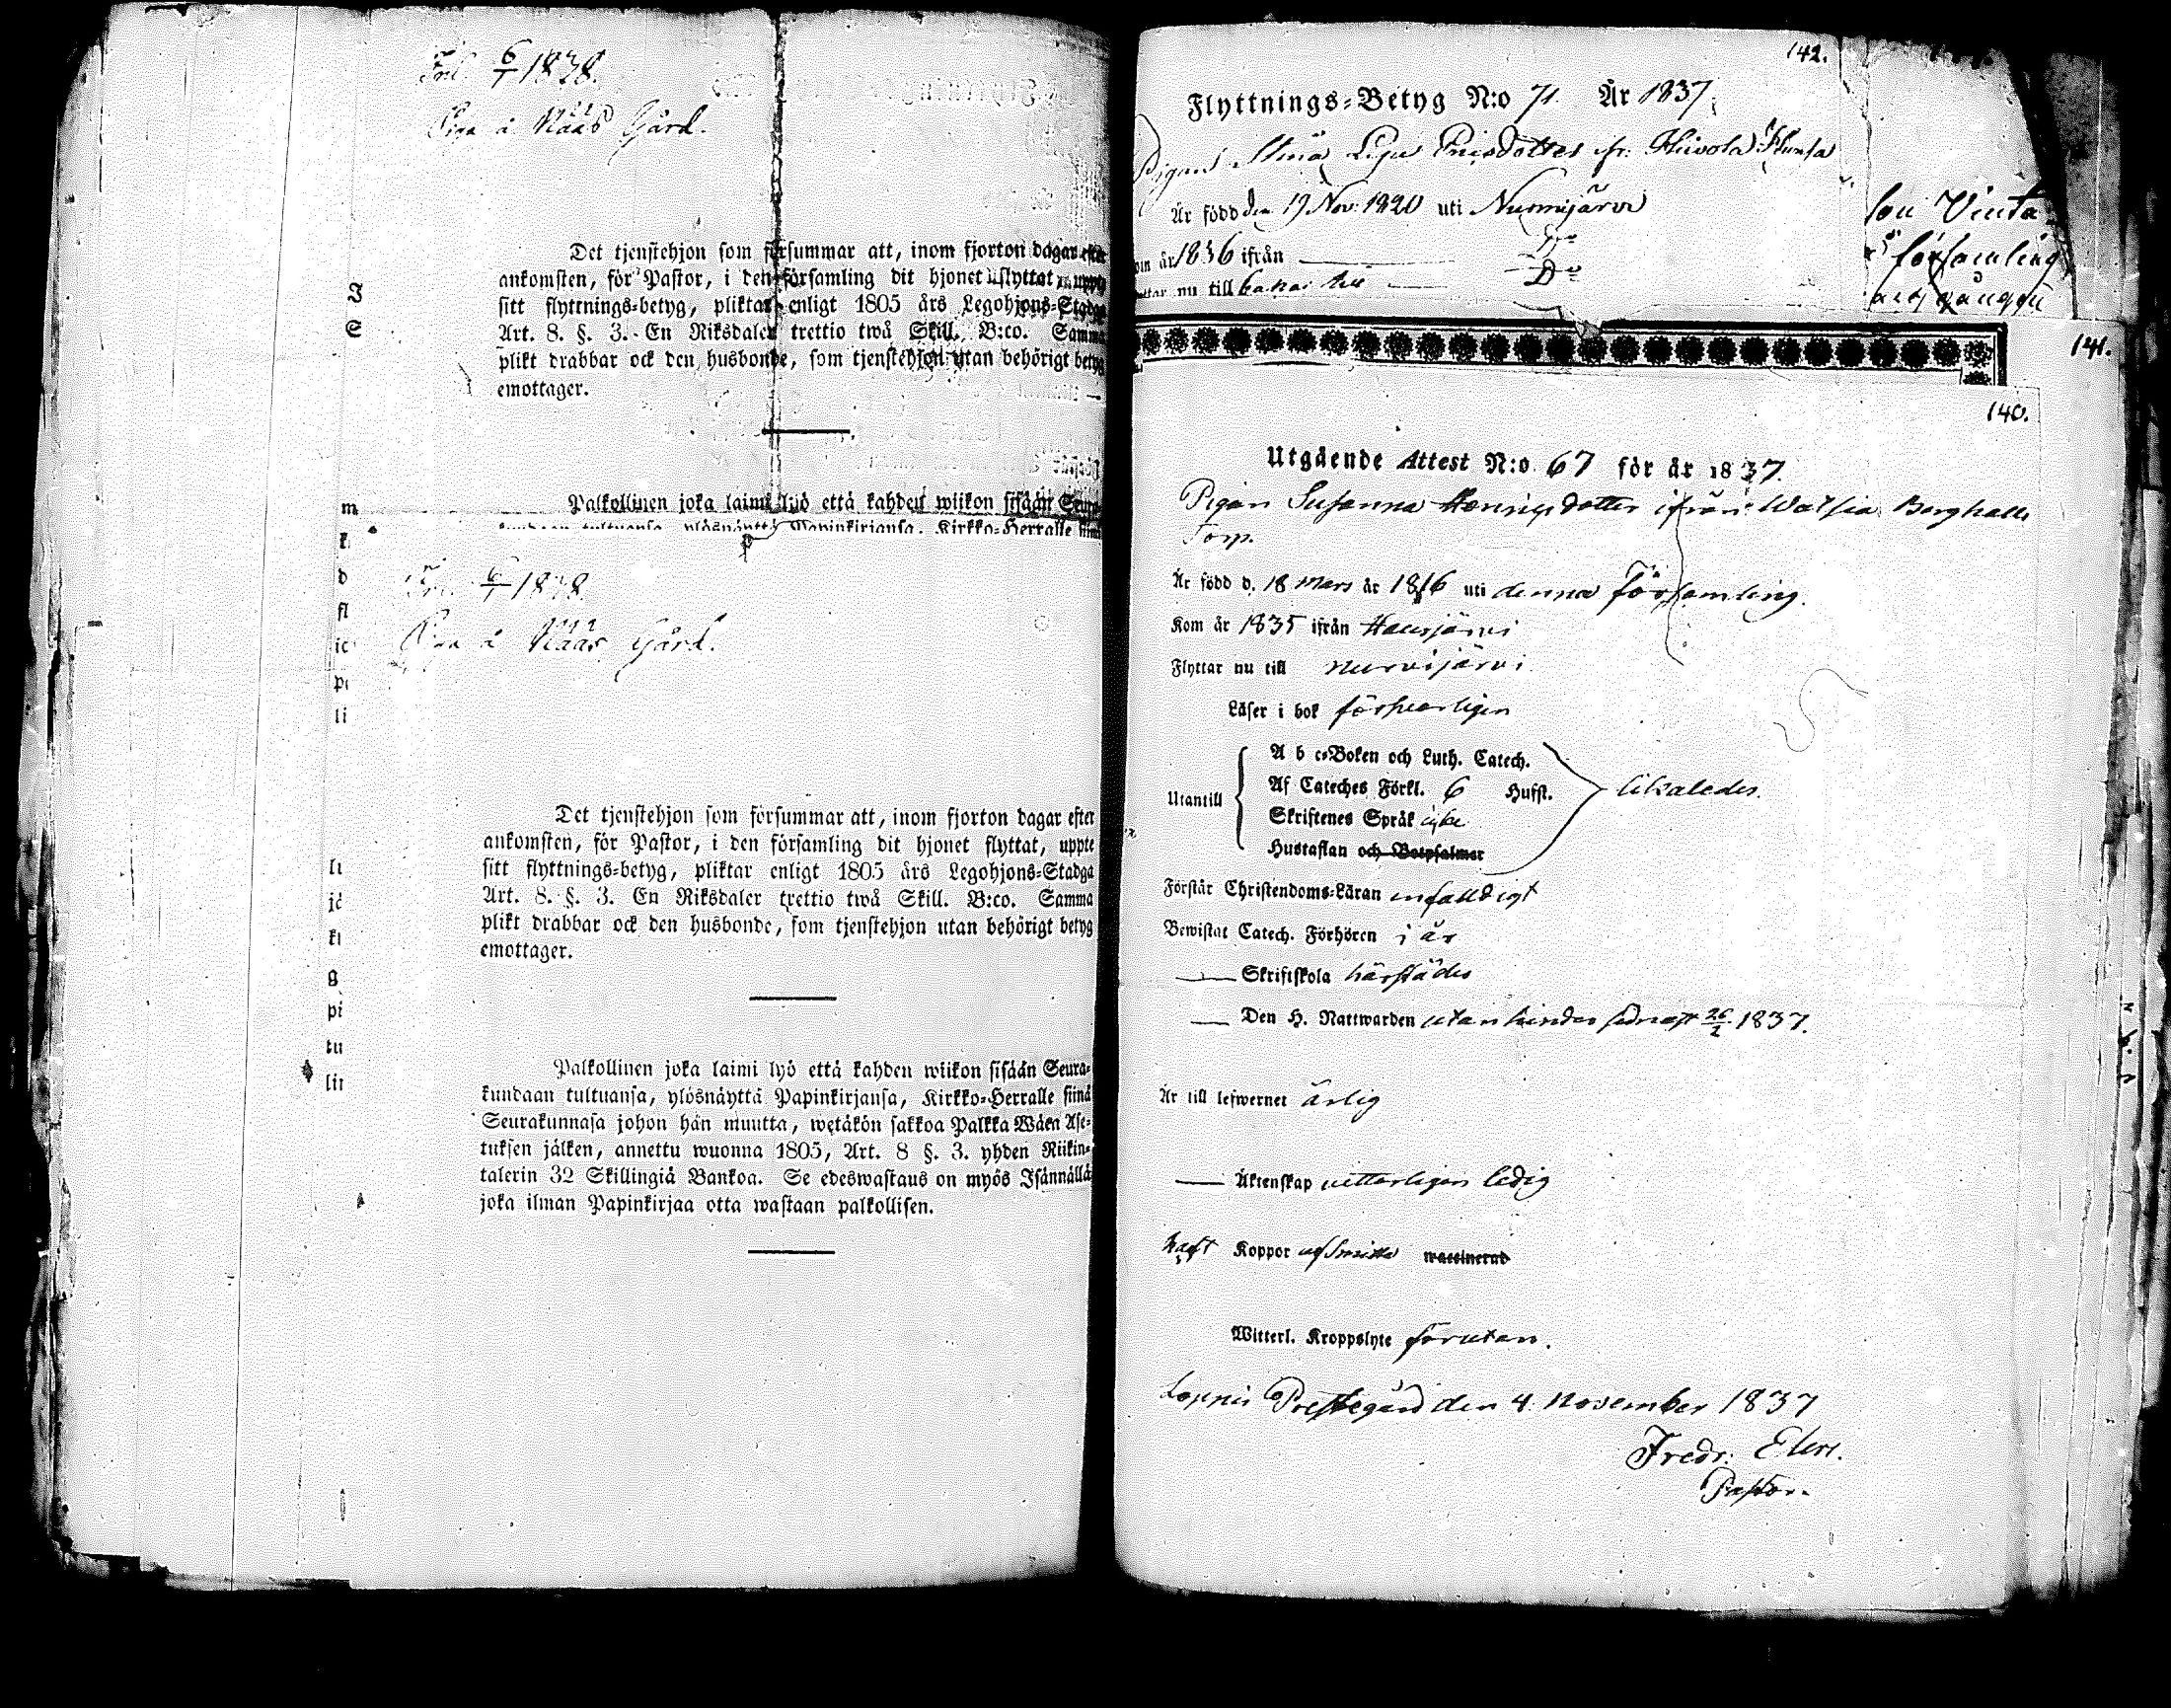 6/1 1838.
Piga å Nääs Gård.
Det tjenstehjon som försummar att, inom fjorton dagar efter
ankomsten, för Pastor, i den församling dit hjonet flyttat, uppte
sitt flyttnings-betyg, pliktar enligt 1805 års Legohjons-Stadga
Art. 8. §. 3. En Riksdaler trettio twå Skill. B:co. Samma
plikt drabbar ock den husbonde, som tjenstehjon utan behörigt betyg
emottager.
Palkollinen joka laimi lyö että kahden wiikon sisään Seura-
kundaan tultuansa, ylösnäyttä Papinkirjansa, Kirkko-Herralle siinä
6/1 1838
Piga å Nääs Gård.
Det tjenstehjon som försummar att, inom fjorton dagar efter
ankomsten, för Pastor, i den församling dit hjonet flyttat, uppte
sitt flyttnings-betyg, pliktar enligt 1805 års Legohjons-Stadga
Art. 8. §. 3. En Riksdaler trettio twå Skill. B:co. Samma
plikt drabbar ock den husbonde, som tjenstehjon utan behörigt betyg
emottager.
Palkollinen joka laimi lyö että kahden wiikon sisään Seura-
kundaan tultuansa, ylösnäyttä Papinkirjansa, Kirkko-Herralle siinä
Seurakunnasa johon hän muutta, wetäkön sakkoa Palkka Wäen Ase-
tuksen jälken, annettu wuonna 1805, Art. 8 §. 3. yhden Riikin-
talerin 32 Skillingiä Bankoa. Se edeswastaus on myös Isännällä
joka ilman Papinkirjaa otta wastaan palkollisen.
142.
Flyttnings-Betyg N:o 71. År 1837
Pigan Stina Lisa
Är född den 19 Nov. 1820 uti Nurmijärvi
Kom år 1836 ifrån D:o
Flyttar nu till D:o
församling
141.
140.
Utgående Attest N:o 67 för år 1837.
Pigan Susanna Henrigsdotter ifrån Watsia Berghalls
Torp.
Är född d. 18 Mars år 1816 uti denna Församling.
Kom år 1835 ifrån Hausjärvi
Flyttar nu till Nurmijärvi
Läser i bok försvarligen
Utantill
A b c-Boken och Luth. Catech.
Af Cateches Förkl. 6 Hufst.
Skriftenes Språk icke
Hustaflan och Botpsalmer
likaledes.
Förstår Christendoms-Läran enfaldigt
Bewistat Catech. Förhören i år
— Skriftskola härstädes
— Den H. Nattwarden utan hinder sednast 26/2 1837.
Är till lefwernet ärlig
— Äktenskap vitterligen ledig
haft Koppor af smitta waccinerad
Witterl. Kroppslyte förutan.
Loppis Prestegård den 4 November 1837
Fredr. Elers.
Pastor.